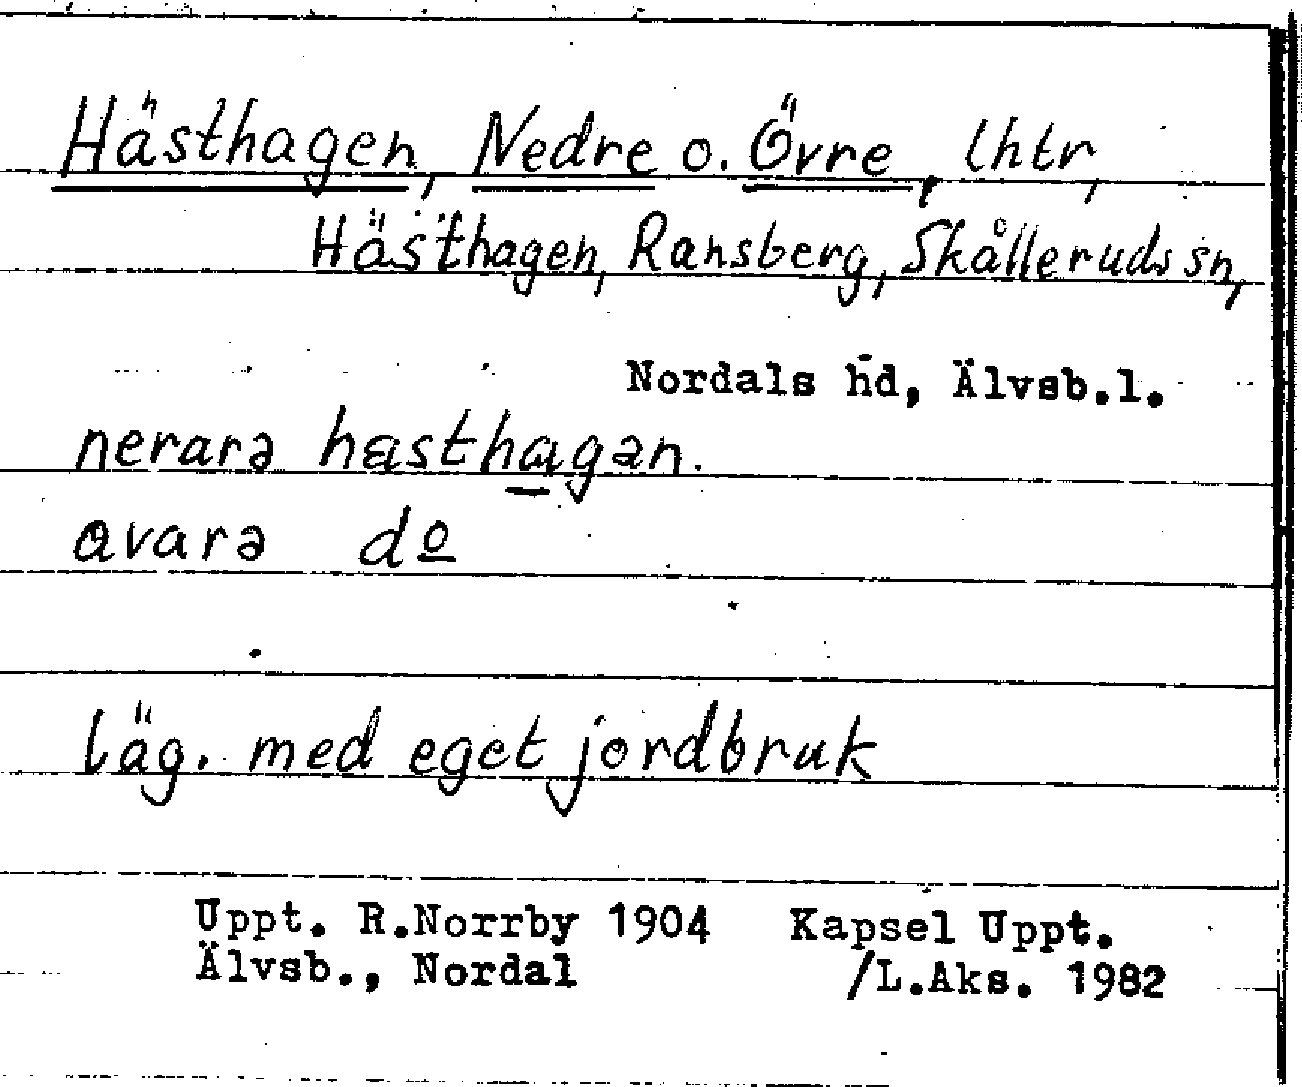 Hästhagen, Nedre o. Övre, lhtr,
Hästhagen, Ransberg, Skållerudssn,
Nordals hd, Älvsb.l.
nerarə hæsthagən.
avarə dº
läg. med eget jordbruk
Uppt. R.Norrby 1904 Kapsel Uppt.
Älvsb., Nordal /L.Aks. 1982